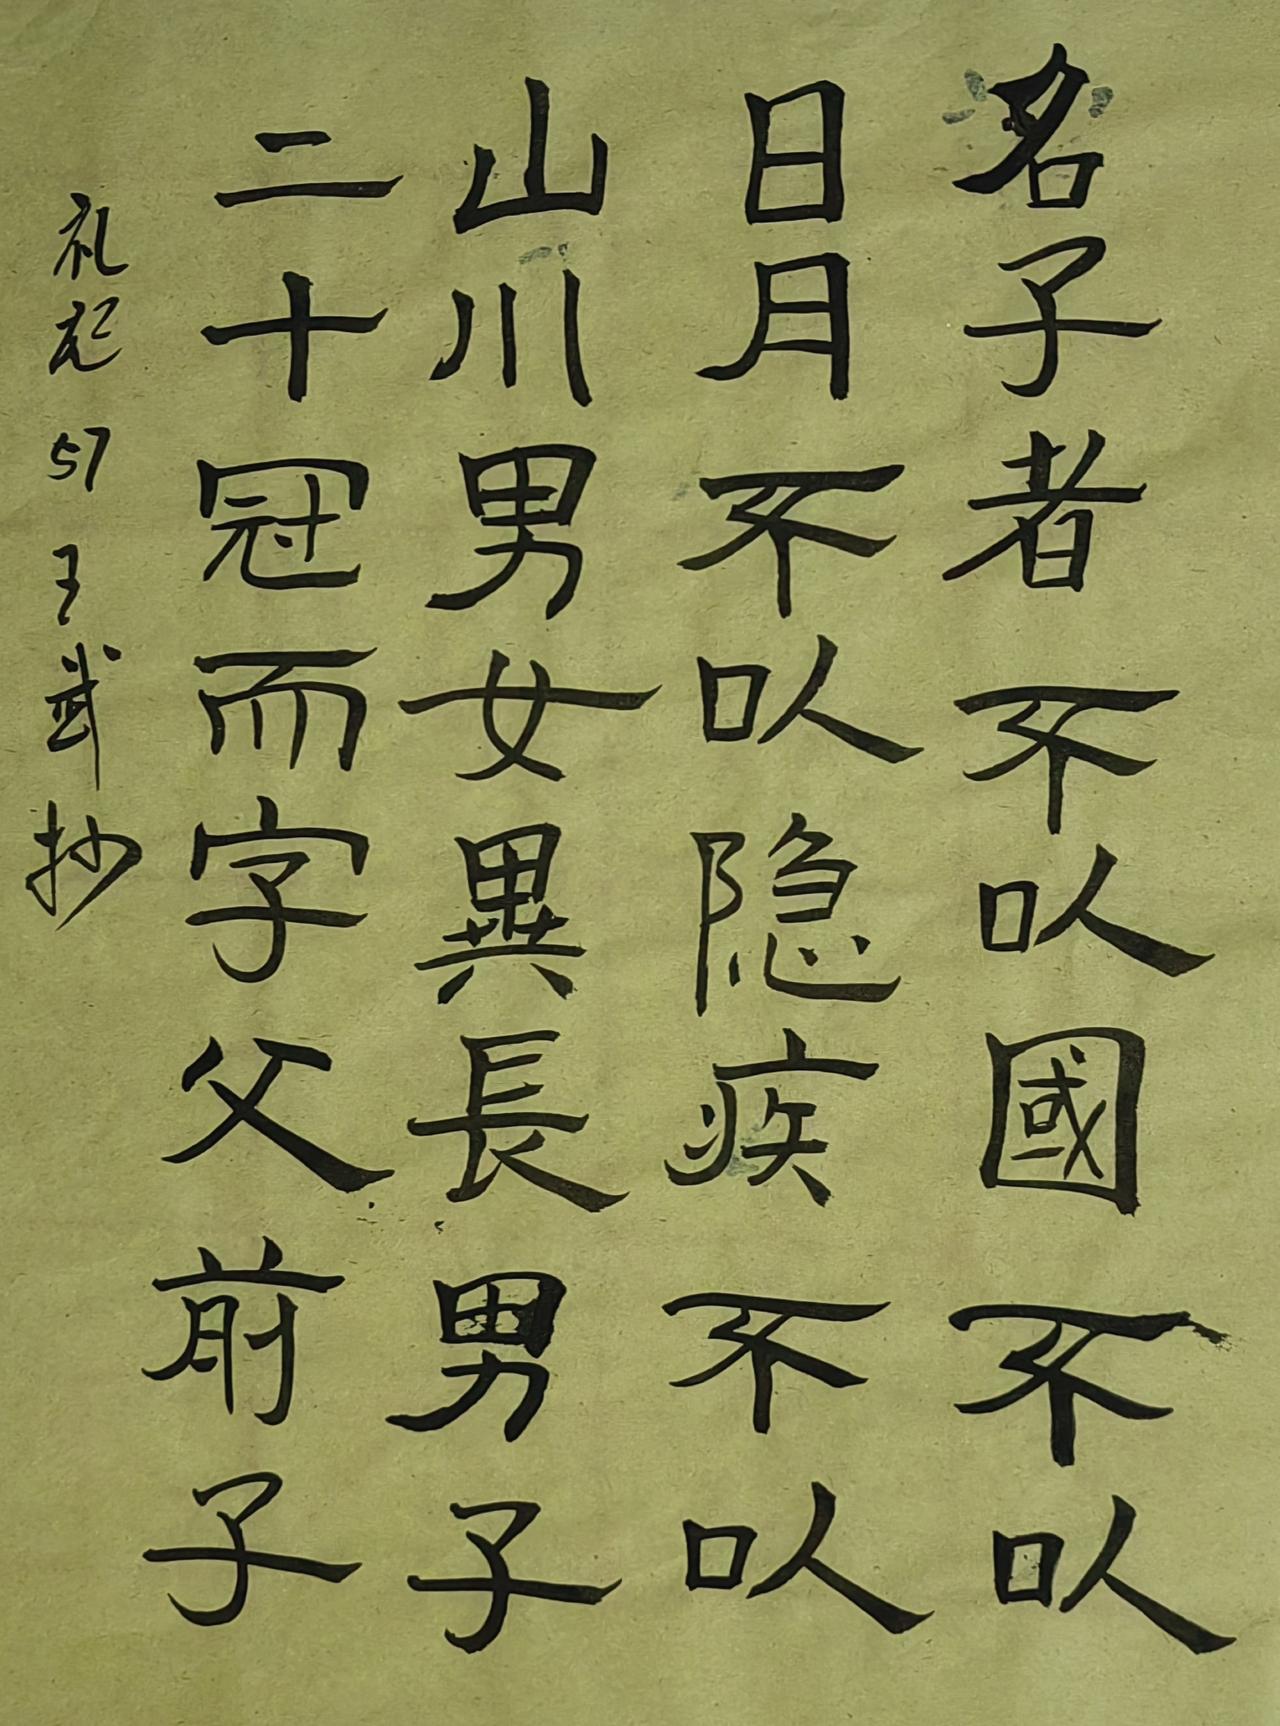 名子者不以國不以
日月不以隐疾不以
山川男女異長男子
二十冠而字父前子
礼记 57 王武抄